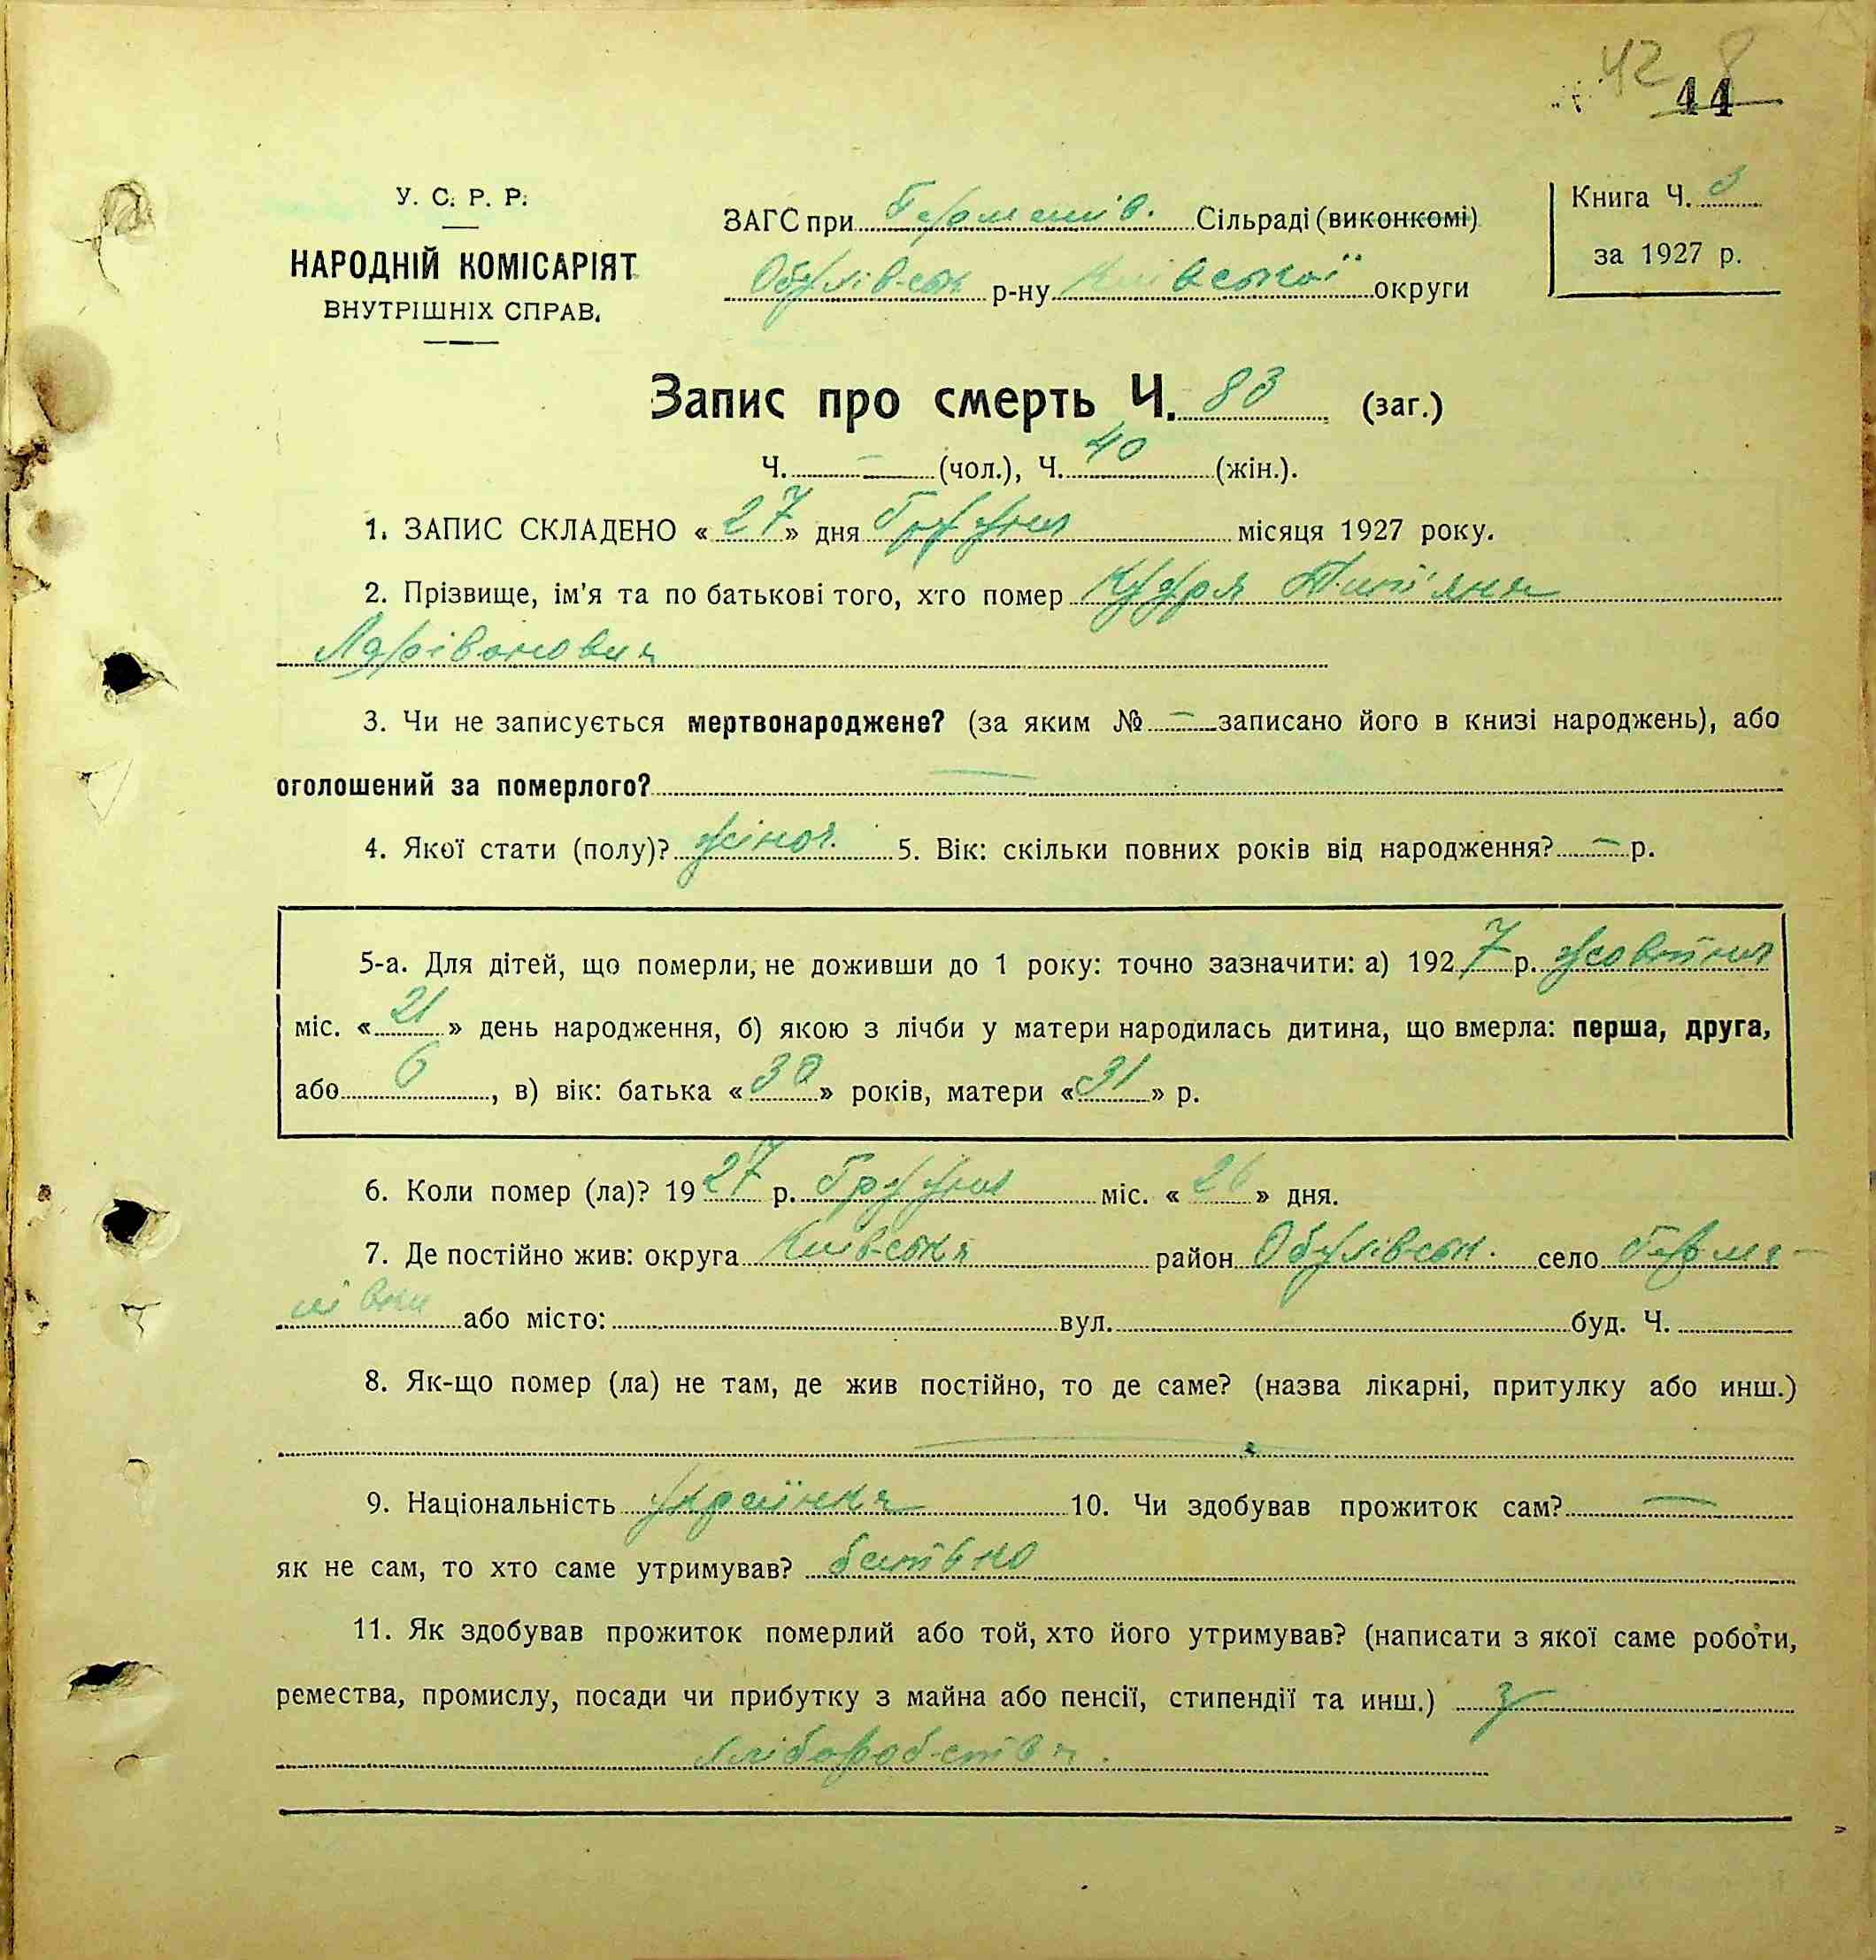 42 8
44
У. С. Р. Р.
НАРОДНІЙ КОМІСАРІЯТ
ВНУТРІШНІХ СПРАВ.
ЗАГС при Германів. Сільраді (виконкомі)
Обухівськ р-ну Київської округи
Книга Ч. 3
за 1927 р.
Запис про смерть Ч. 83 (заг.)
Ч. — (чол.), Ч. 40 (жін.).
1. ЗАПИС СКЛАДЕНО « 27 » дня Грудня місяця 1927 року.
2. Прізвище, ім'я та по батькові того, хто помер Кудря Тит'яна
Ларівоновна
3. Чи не записується мертвонароджене? (за яким № — записано його в книзі народжень), або
оголошений за померлого? —
4. Якої стати (полу)? жіноч. 5. Вік: скільки повних років від народження? — р.
5-а. Для дітей, що померли, не доживши до 1 року: точно зазначити: а) 1927 р. Жовтня
міс. « 21 » день народження, б) якою з лічби у матери народилась дитина, що вмерла: перша, друга,
або 6, в) вік: батька « 30 » років, матери « 31 » р.
6. Коли помер (ла)? 1927 р. Грудня міс. « 26 » дня.
7. Де постійно жив: округа Київська район Обухівськ. село Герма-
нівка або місто: вул. буд. Ч.
8. Як-що помер (ла) не там, де жив постійно, то де саме? (назва лікарні, притулку або инш.)
—
9. Національність українка 10. Чи здобував прожиток сам? —
як не сам, то хто саме утримував? батько
11. Як здобував прожиток померлий або той, хто його утримував? (написати з якої саме роботи,
ремества, промислу, посади чи прибутку з майна або пенсії, стипендії та инш.) з
хліборобства.